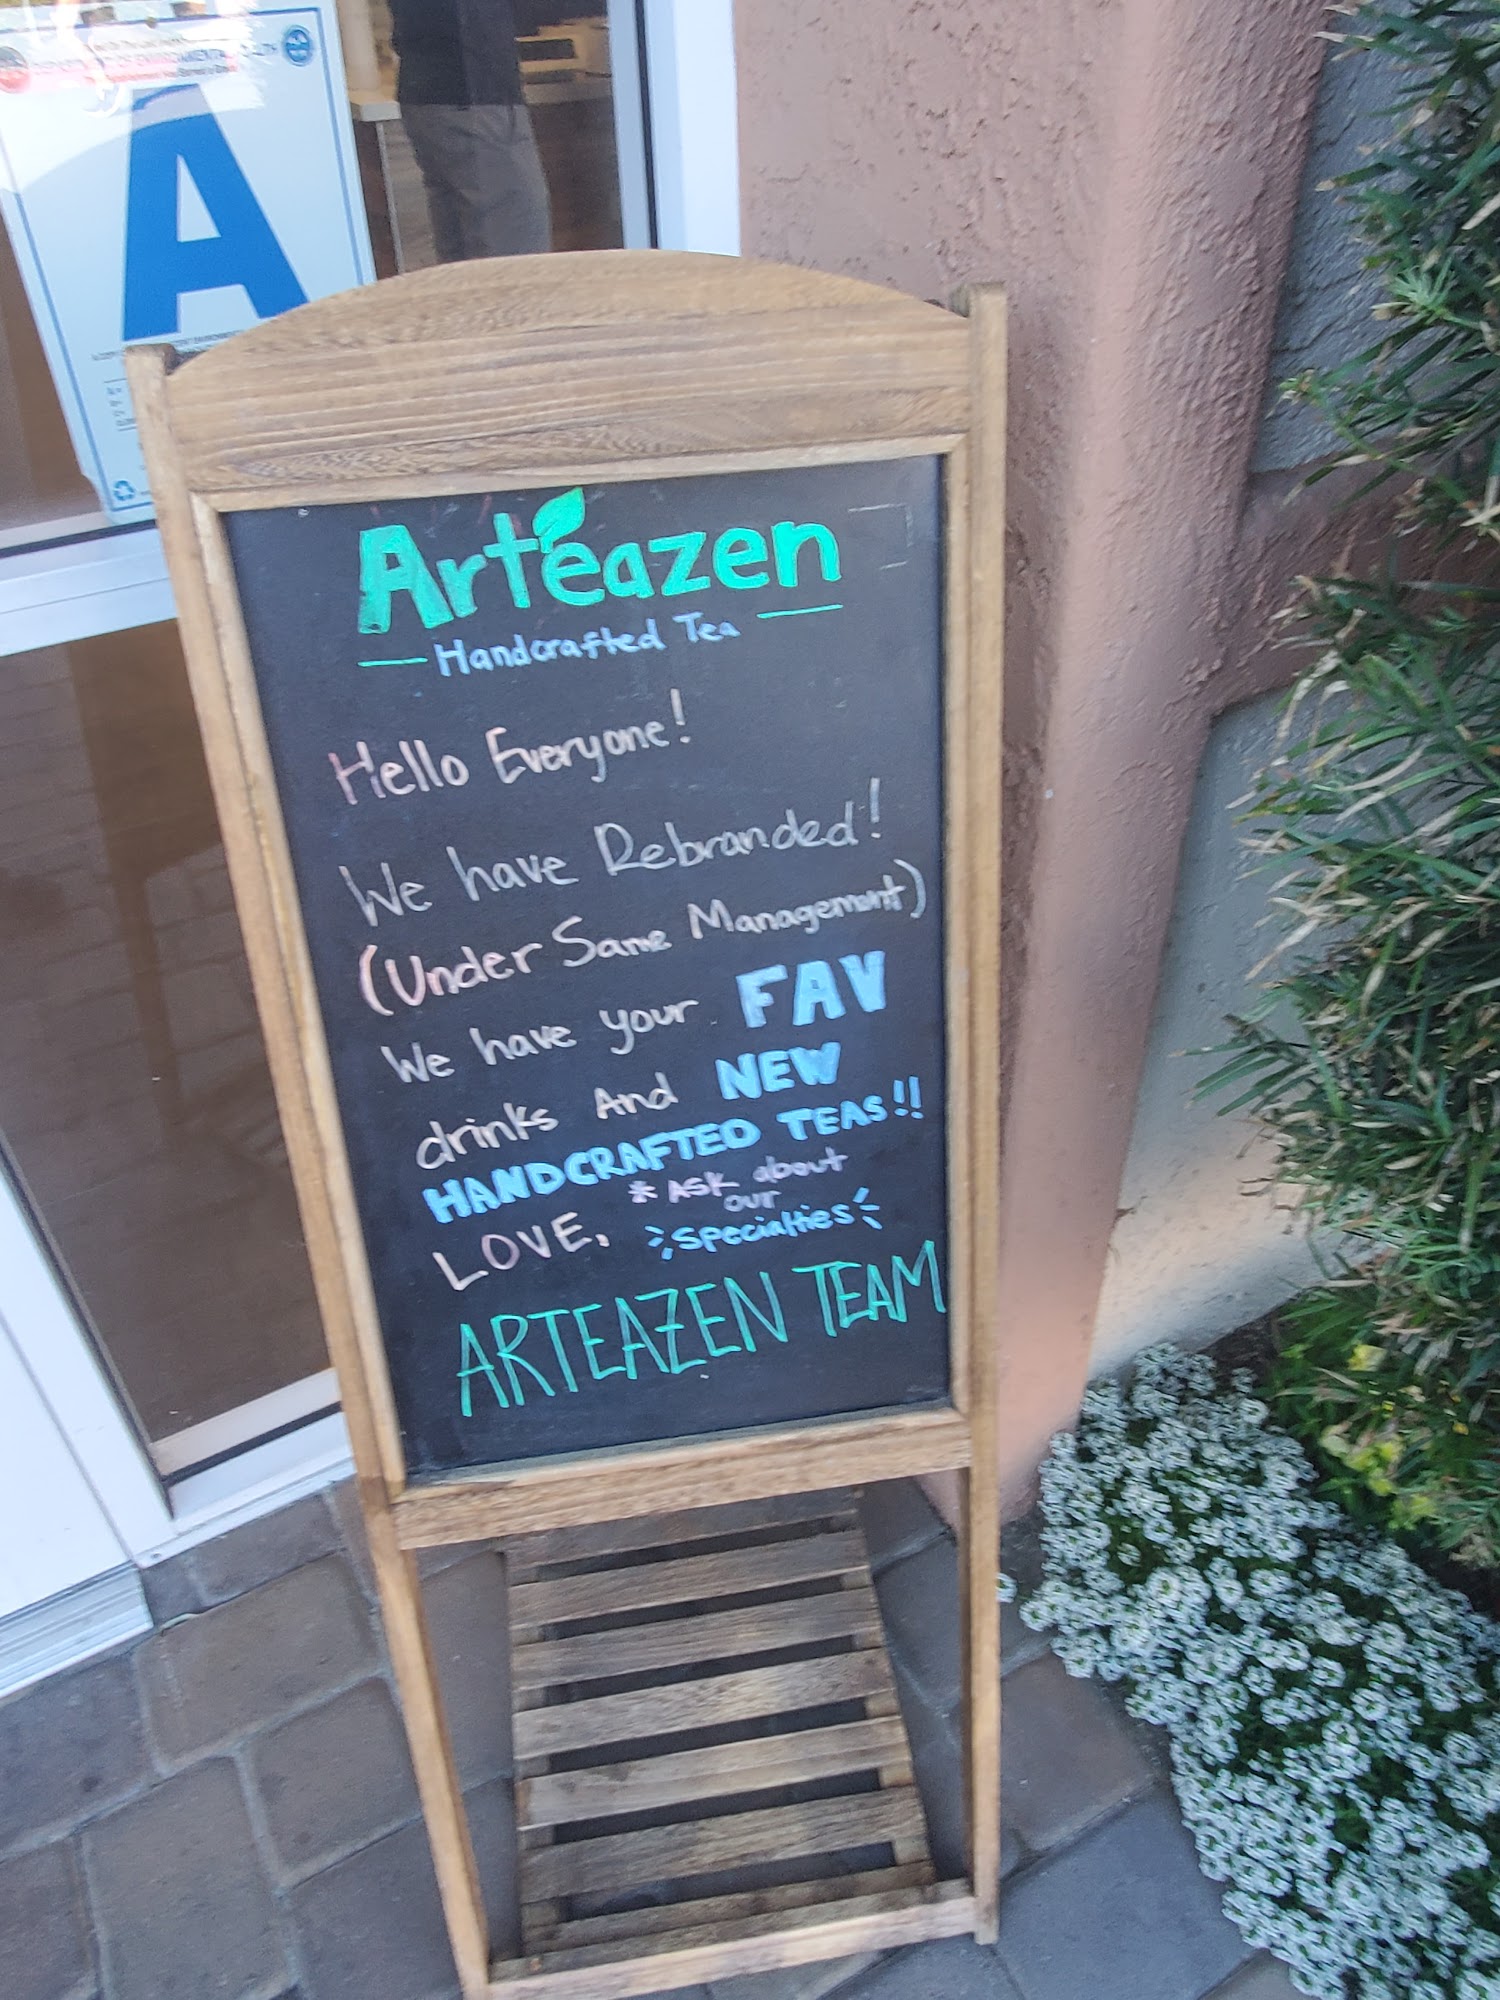 OF ENVIRONMENTAL HEALTH
A
Arteazen
Handcrafted Tea
Hello Everyone!
We have Rebranded!
(Under Same Management)
We have your FAV
drinks And NEW
HANDCRAFTED TEAS!!
* Ask about
our
specialties
LOVE,
ARTEAZEN TEAM